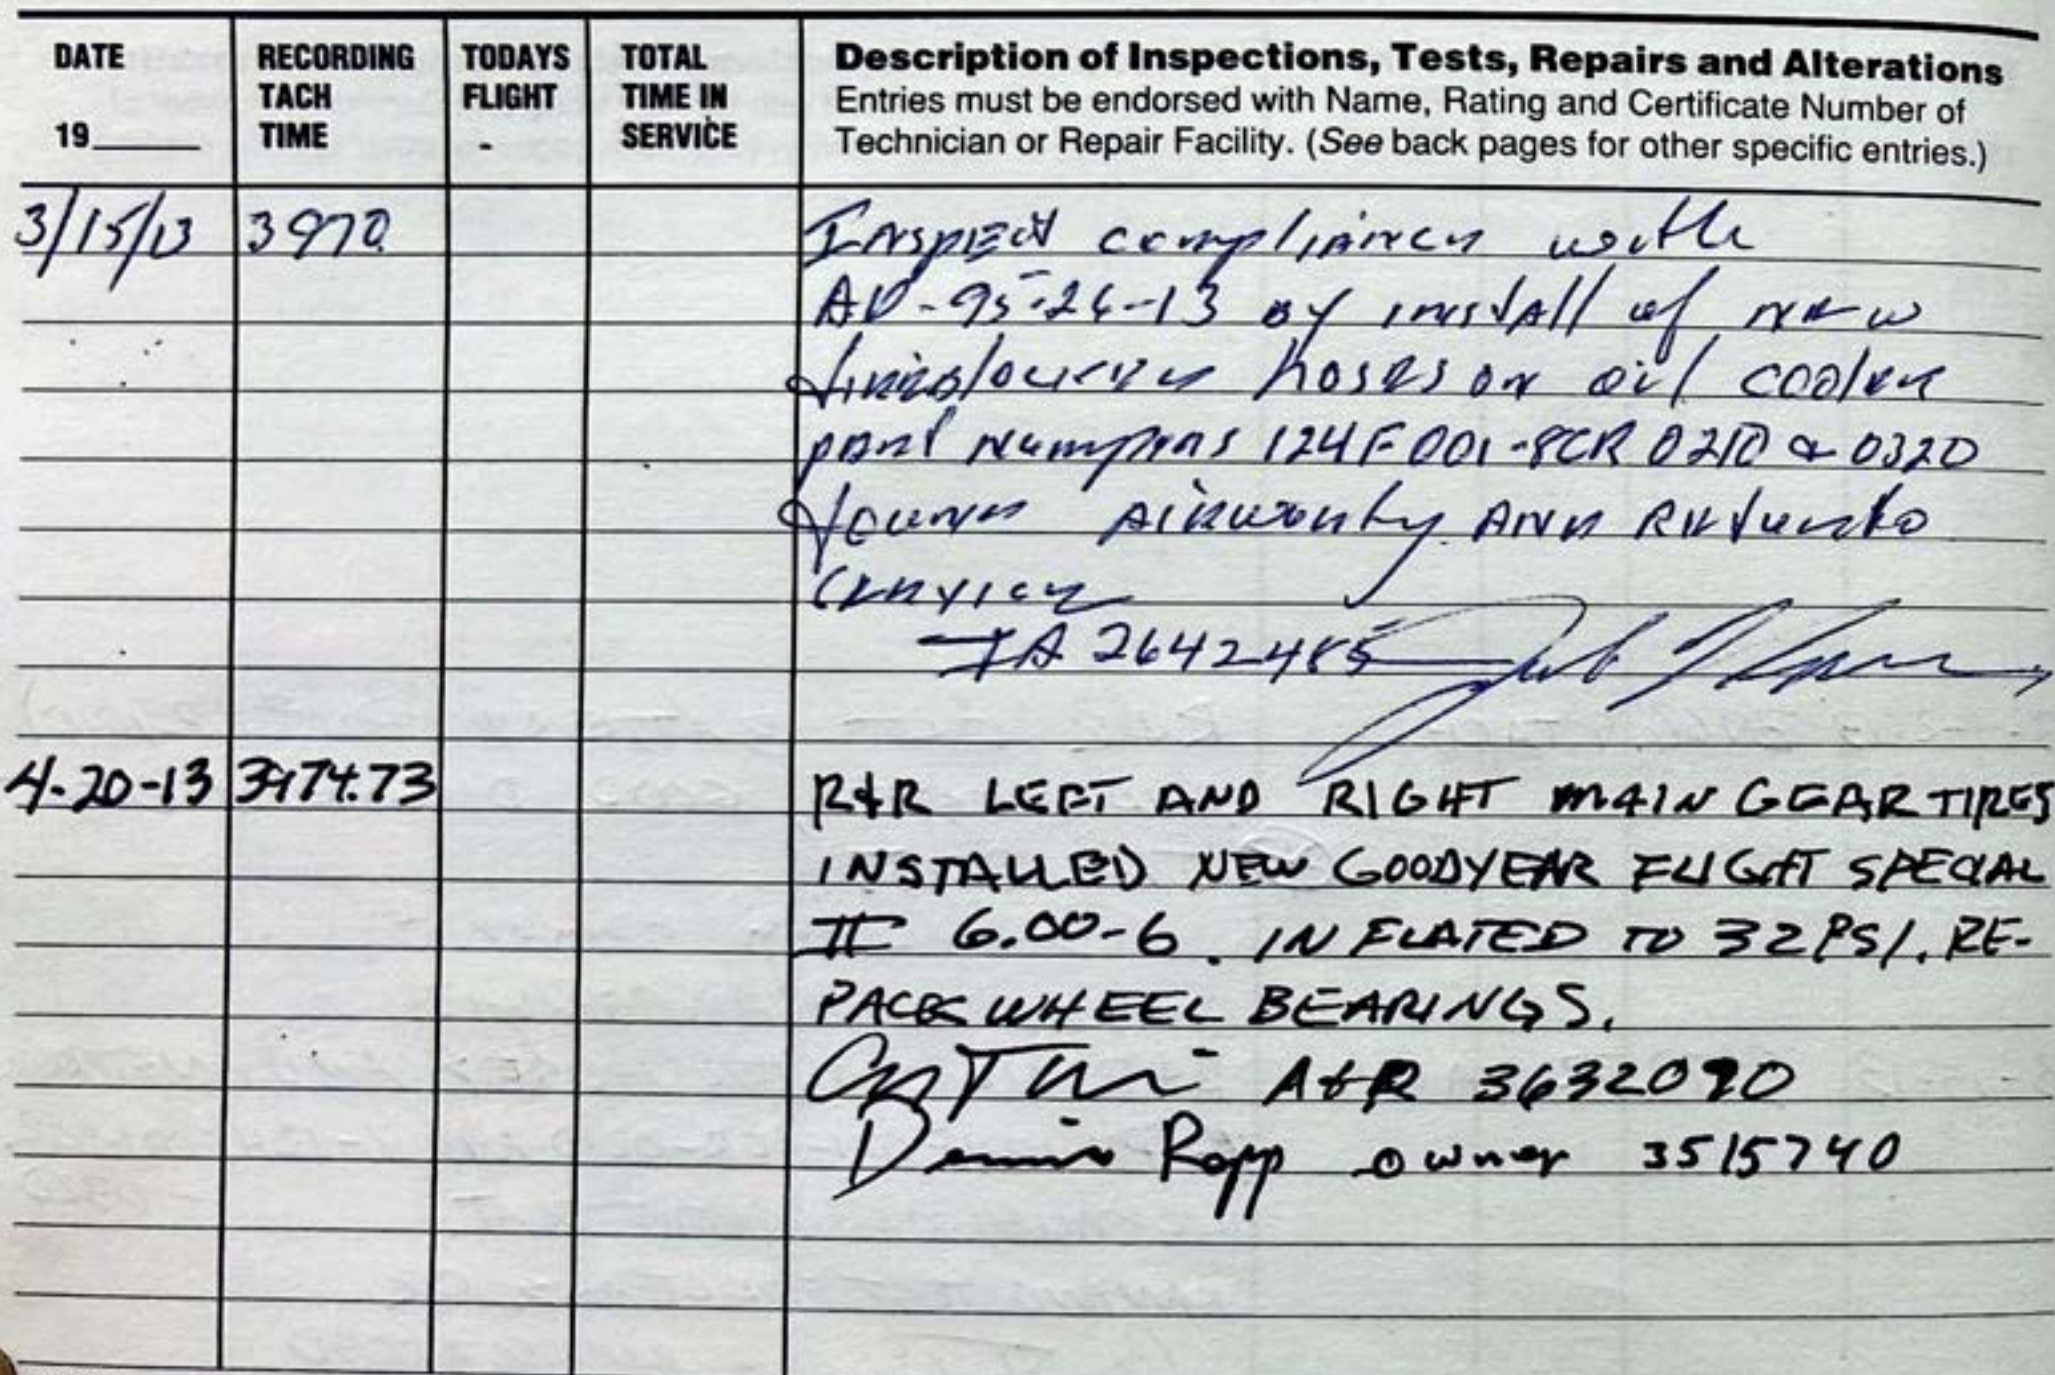 DATE RECORDING TODAYS TOTAL Description of Inspections, Tests, Repairs and Alterations
TACH FLIGHT TIME IN Entries must be endorsed with Name, Rating and Certificate Number of
19____ TIME - SERVICE Technician or Repair Facility. (See back pages for other specific entries.)
3/15/13 3970 Inspect compliance with
AD-95-26-13 by install of new
hoses on oil cooler
part numbers 124F001-8CR 0210 & 0320
found airworthy and return to
service
IA 2642485
4-20-13 3974.73 R&R LEFT AND RIGHT MAIN GEAR TIRES
INSTALLED NEW GOODYEAR FLIGHT SPECIAL
II 6.00-6. INFLATED TO 32 PSI. RE-
PACK WHEEL BEARINGS.
A&P 3632090
Dennis Rapp owner 3515740